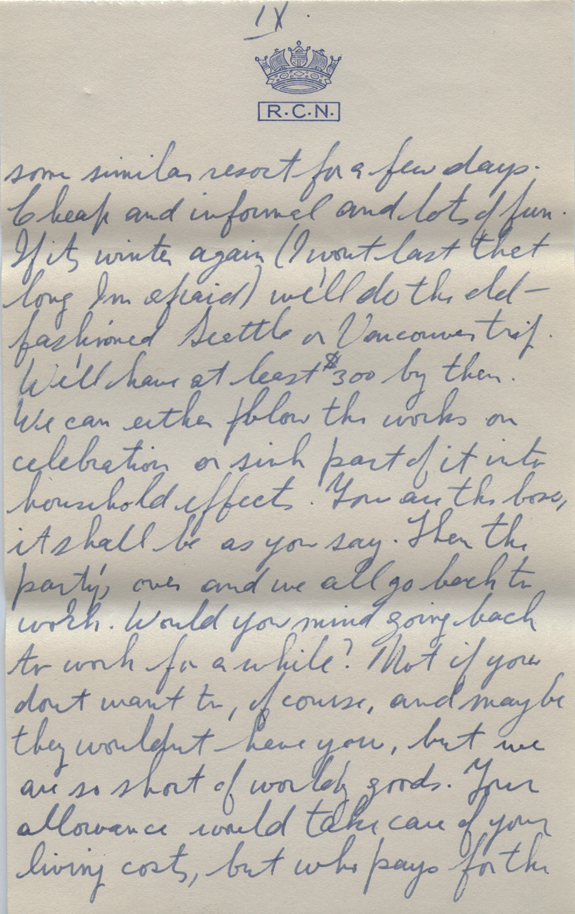 IX.
R.C.N.
some similar resort for a few days.
Cheap and informal and lots of fun.
If its winter again (I wont last that
long Im afraid) we'll do the old-
fashioned Seattle or Vancouver trip.
We'll have at least $300 by then.
We can either blow the works on
celebration or sink part of it into
household effects. You are the boss,
it shall be as you say. Then the
party's over and we all go back to
work. Would you mind going back
to work for a while? Not if you
dont want to, of course, and maybe
they wouldnt have you, but we
are so short of worldly goods. Your
allowance would take care of your
living costs, but who pays for the